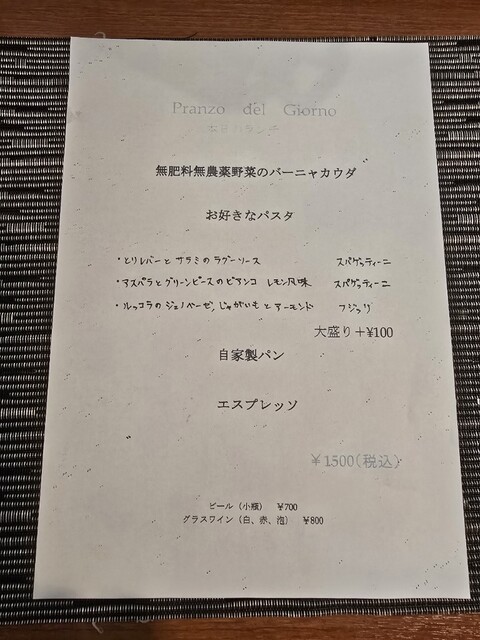 Pranzo del Giorno
本日のランチ
無肥料無農薬野菜のバーニャカウダ
お好きなパスタ
・とりレバーとサラミのラグーソース スパゲッティーニ
・アスパラとグリーンピースのビアンコ レモン風味 スパゲッティーニ
・ルッコラのジェノベーゼ、じゃがいもとアーモンド フジッリ
大盛り＋¥100
自家製パン
エスプレッソ
￥1500(税込)
ビール（小瓶） ￥700
グラスワイン（白、赤、泡） ￥800